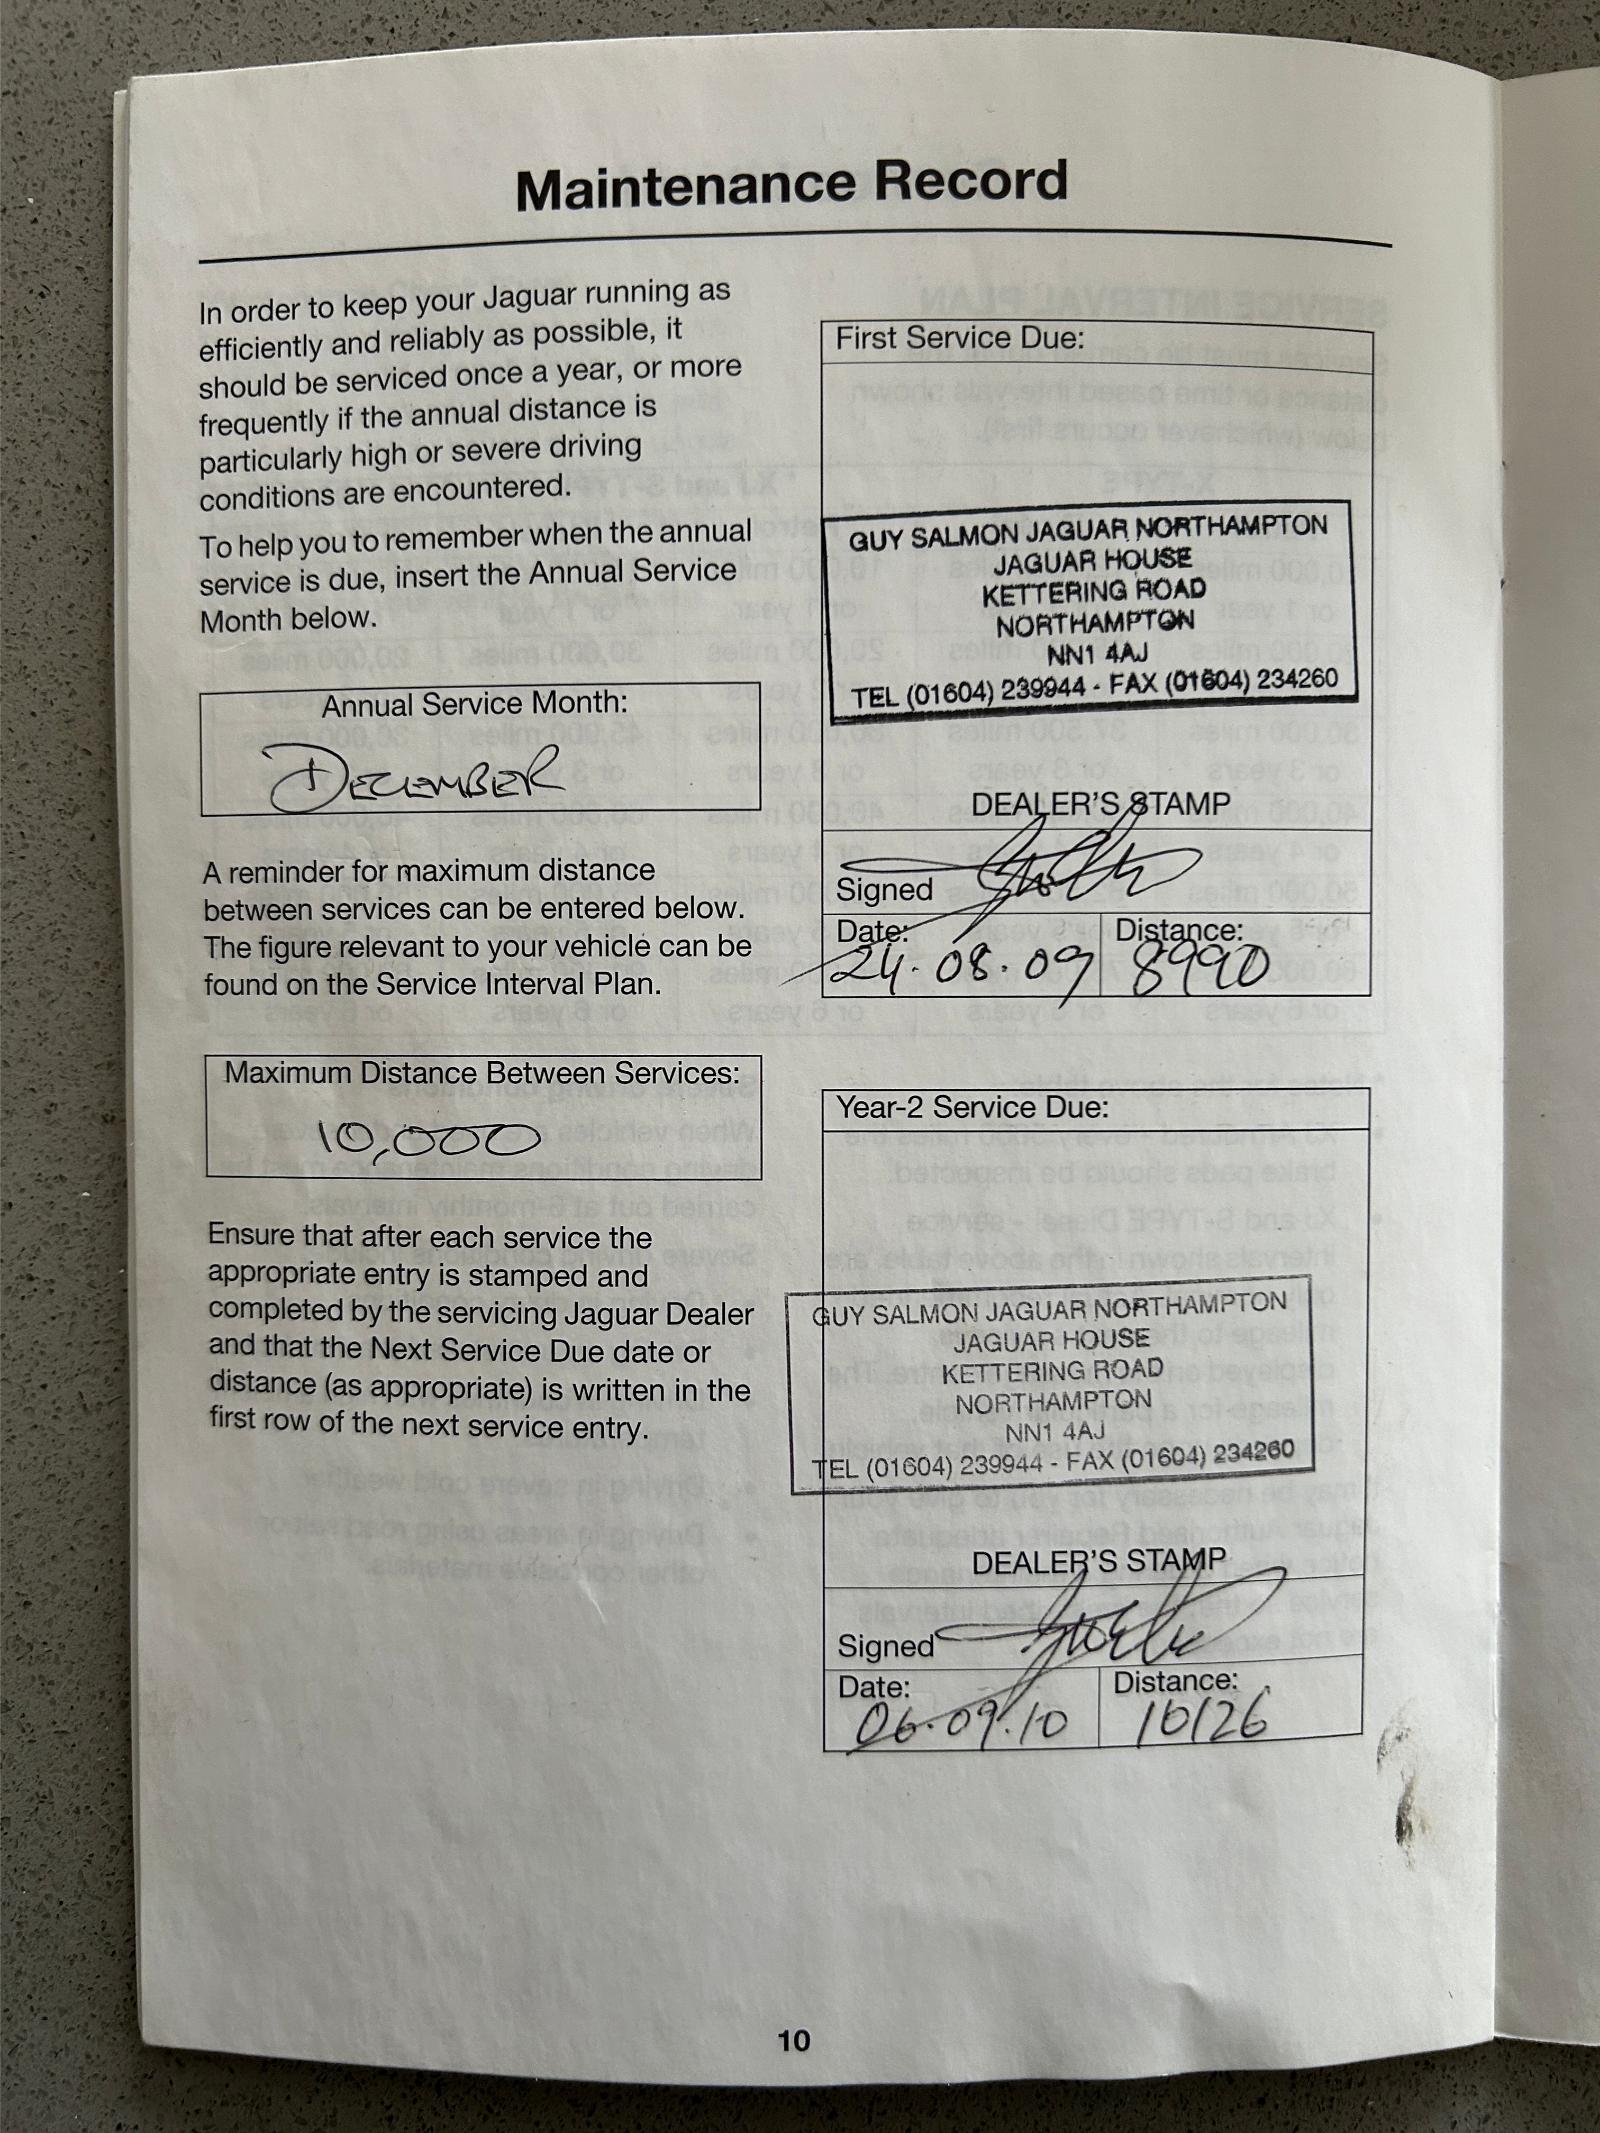 Maintenance Record
In order to keep your Jaguar running as
efficiently and reliably as possible, it
should be serviced once a year, or more
frequently if the annual distance is
particularly high or severe driving
conditions are encountered.
To help you to remember when the annual
service is due, insert the Annual Service
Month below.
Annual Service Month:
DECEMBER
A reminder for maximum distance
between services can be entered below.
The figure relevant to your vehicle can be
found on the Service Interval Plan.
Maximum Distance Between Services:
10,000
Ensure that after each service the
appropriate entry is stamped and
completed by the servicing Jaguar Dealer
and that the Next Service Due date or
distance (as appropriate) is written in the
first row of the next service entry.
First Service Due:
GUY SALMON JAGUAR NORTHAMPTON
JAGUAR HOUSE
KETTERING ROAD
NORTHAMPTON
NN1 4AJ
TEL (01604) 239944 - FAX (01604) 234260
DEALER'S STAMP
Signed
Date: Distance:
24.08.09 8990
Year-2 Service Due:
GUY SALMON JAGUAR NORTHAMPTON
JAGUAR HOUSE
KETTERING ROAD
NORTHAMPTON
NN1 4AJ
TEL (01604) 239944 - FAX (01604) 234260
DEALER'S STAMP
Signed
Date: Distance:
06.09.10 10126
10